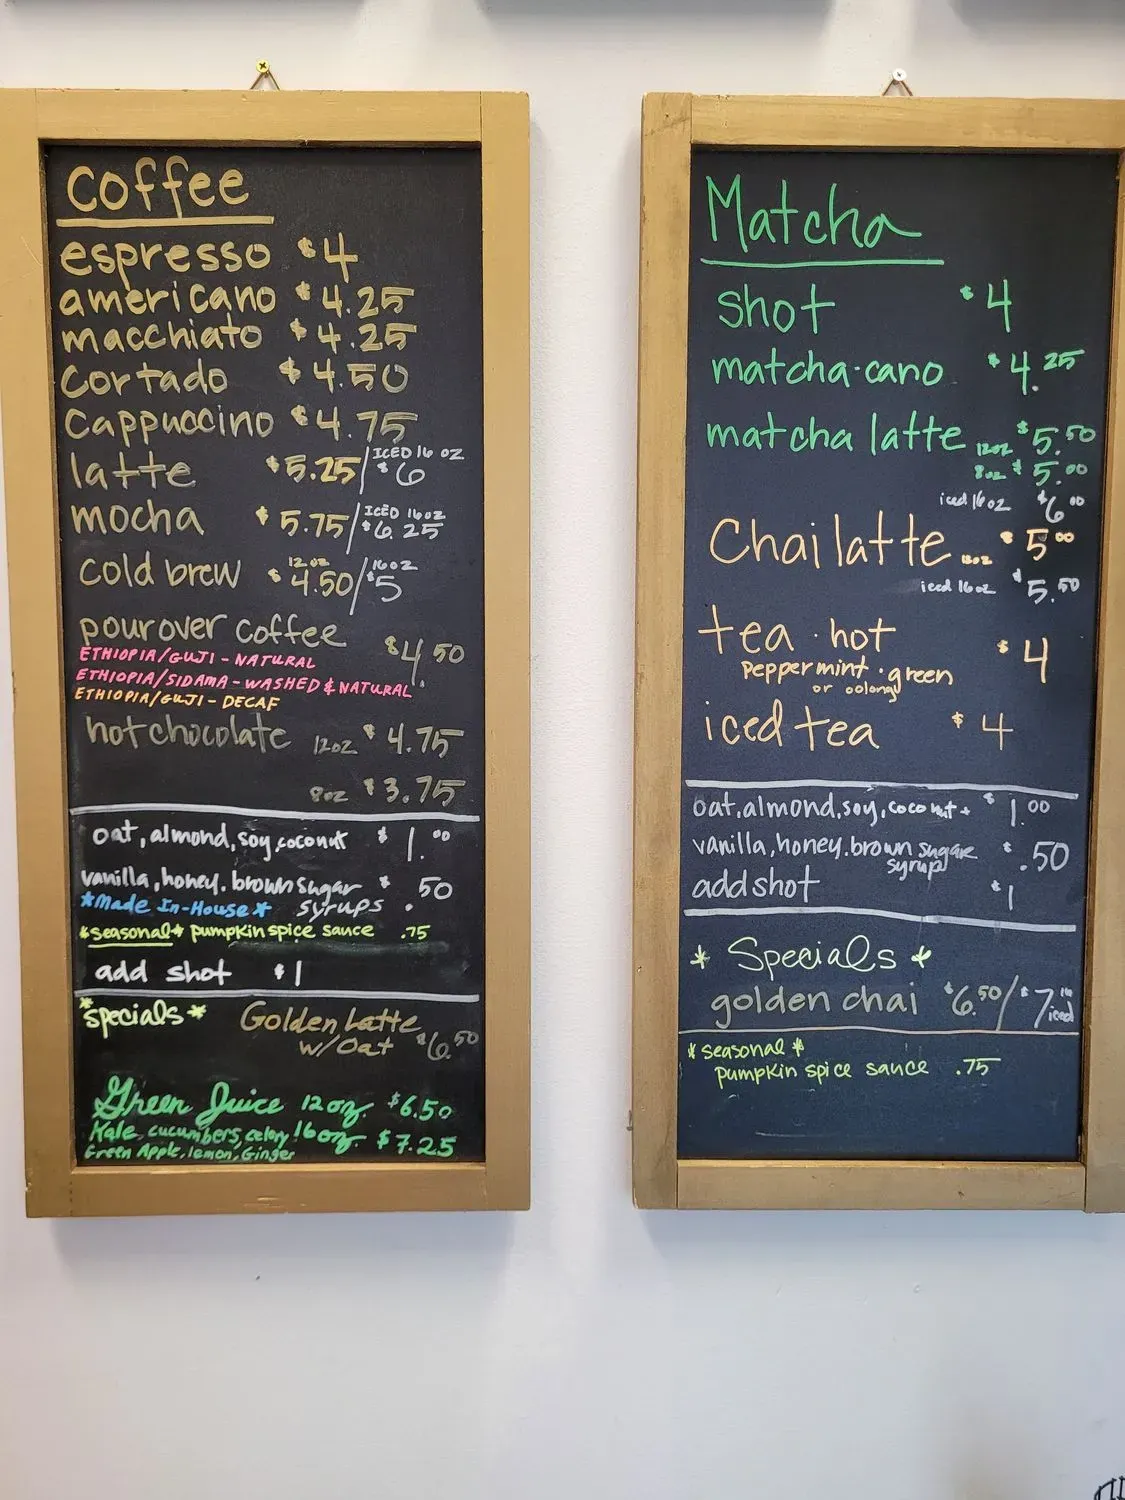 Coffee
espresso $4
americano $4.25
macchiato $4.25
Cortado $4.50
Cappuccino $4.75
latte $5.25/ICED 16 OZ $6
mocha $5.75/ICED 16 OZ $6.25
cold brew 12 oz $4.50/16OZ $5
pourover coffee $4.50
ETHIOPIA/GUJI - NATURAL
ETHIOPIA/SIDAMA - WASHED & NATURAL
ETHIOPIA/GUJI - DECAF
hot chocolate 12oz $4.75
8oz $3.75
oat, almond, soy, coconut $1.00
vanilla, honey, brown sugar $.50
*Made In-House* syrups
*seasonal* pumpkin spice sauce .75
add shot $1
*specials* Golden Latte
w/Oat $6.50
Green Juice 12oz. $6.50
Kale, cucumbers, celery 16oz. $7.25
Green Apple, lemon, Ginger
Matcha
shot $4
matcha·cano $4.25
matcha latte 12oz $5.50
8oz $5.00
iced 16oz $6.00
Chai latte 12oz $5.00
iced 16oz $5.50
tea · hot $4
peppermint · green
or oolong
iced tea $4
oat, almond, soy, coconut $1.00
vanilla, honey, brown sugar $.50
syrup
add shot $1
* Specials *
golden chai $6.50/$7 16 iced
*seasonal*
pumpkin spice sauce .75